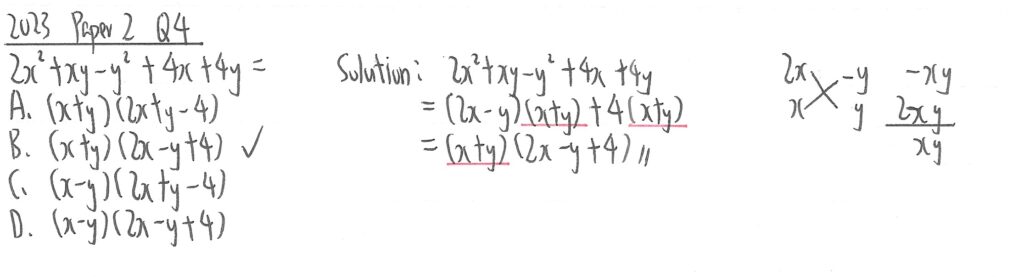 2023 Paper 2 Q4
2x²+xy-y²+4x+4y =
A. (x+y)(2x+y-4)
B. (x+y)(2x-y+4) ✓
C. (x-y)(2x+y-4)
D. (x-y)(2x-y+4)
Solution: 2x²+xy-y²+4x+4y
= (2x-y)(x+y)+4(x+y)
= (x+y)(2x-y+4) //
2x -y -xy
x y 2xy
xy